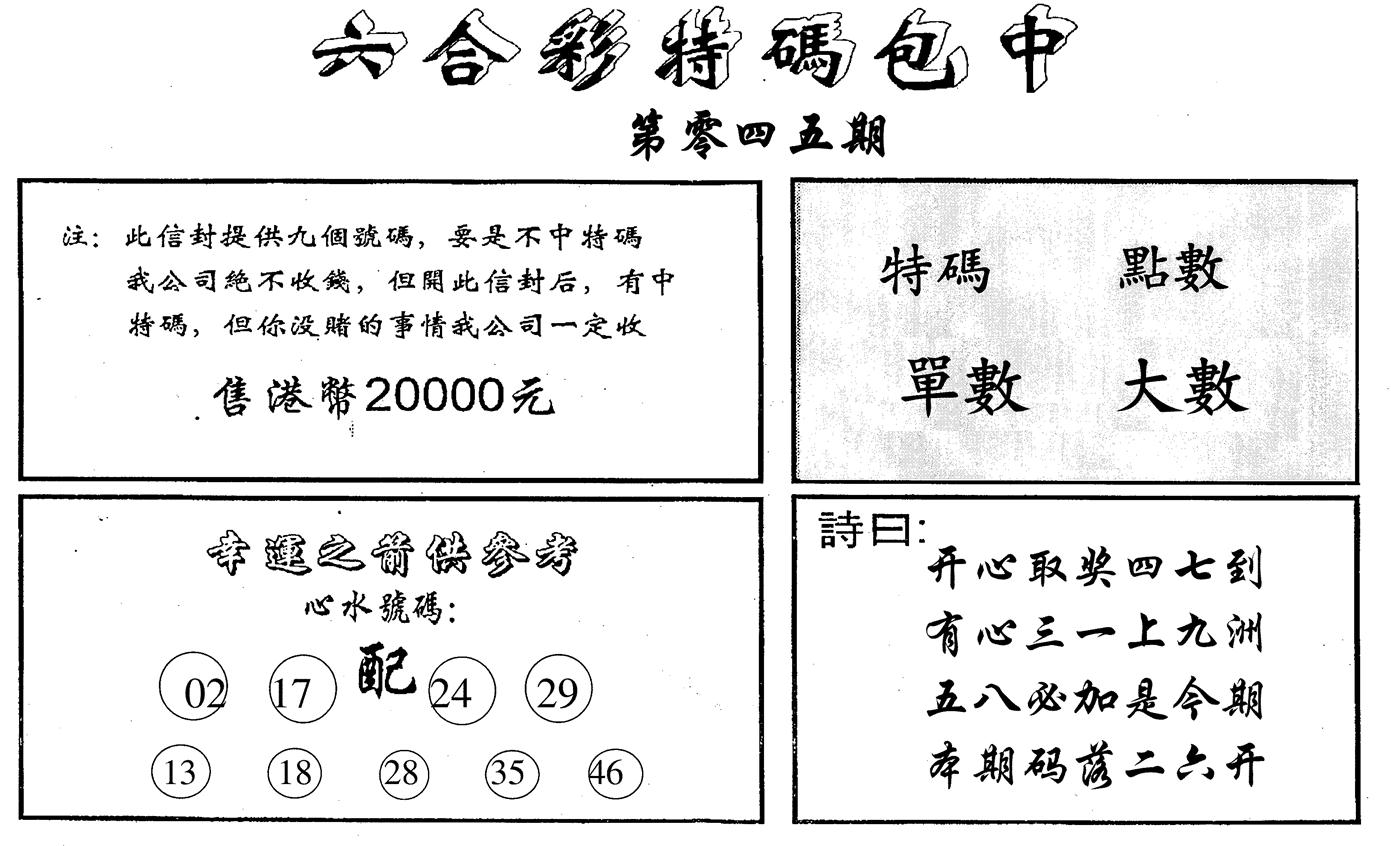 六合彩特碼包中
第零四五期
注：此信封提供九個號碼，要是不中特碼
我公司絕不收錢，但開此信封后，有中
特碼，但你没賭的事情我公司一定收
售港幣20000元
特碼 點數
單數 大數
幸運之箭供參考
心水號碼：
02 17 配 24 29
13 18 28 35 46
詩曰：
开心取奖四七到
有心三一上九洲
五八必加是今期
本期码落二六开